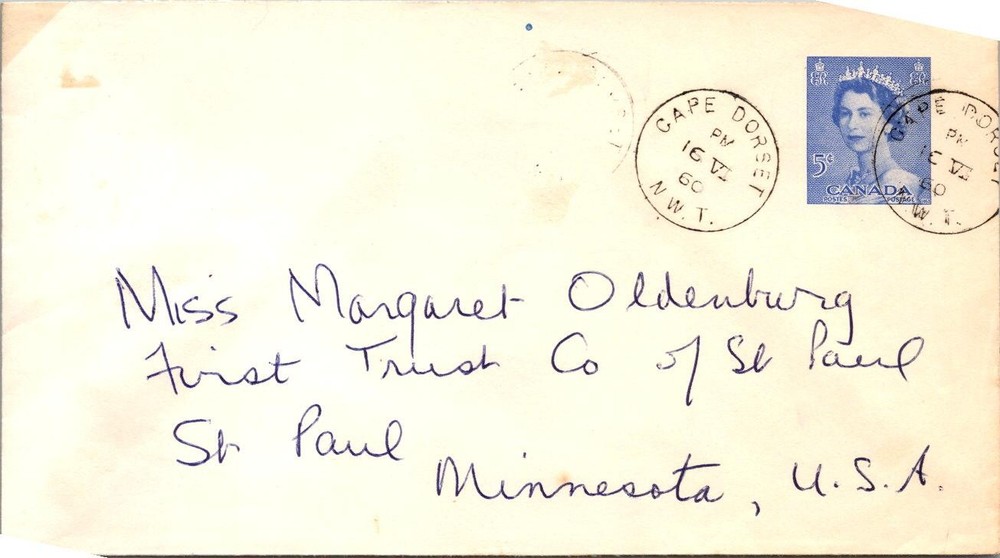 CAPE DORSET
PM
16 VI
60
N.W.T.
CAPE DORSET
PM
16 VI
60
N.W.T.
ER ER
5¢
CANADA
POSTES POSTAGE
Miss Margaret Oldenburg
First Trust Co of St Paul
St Paul
Minnesota, U.S.A.